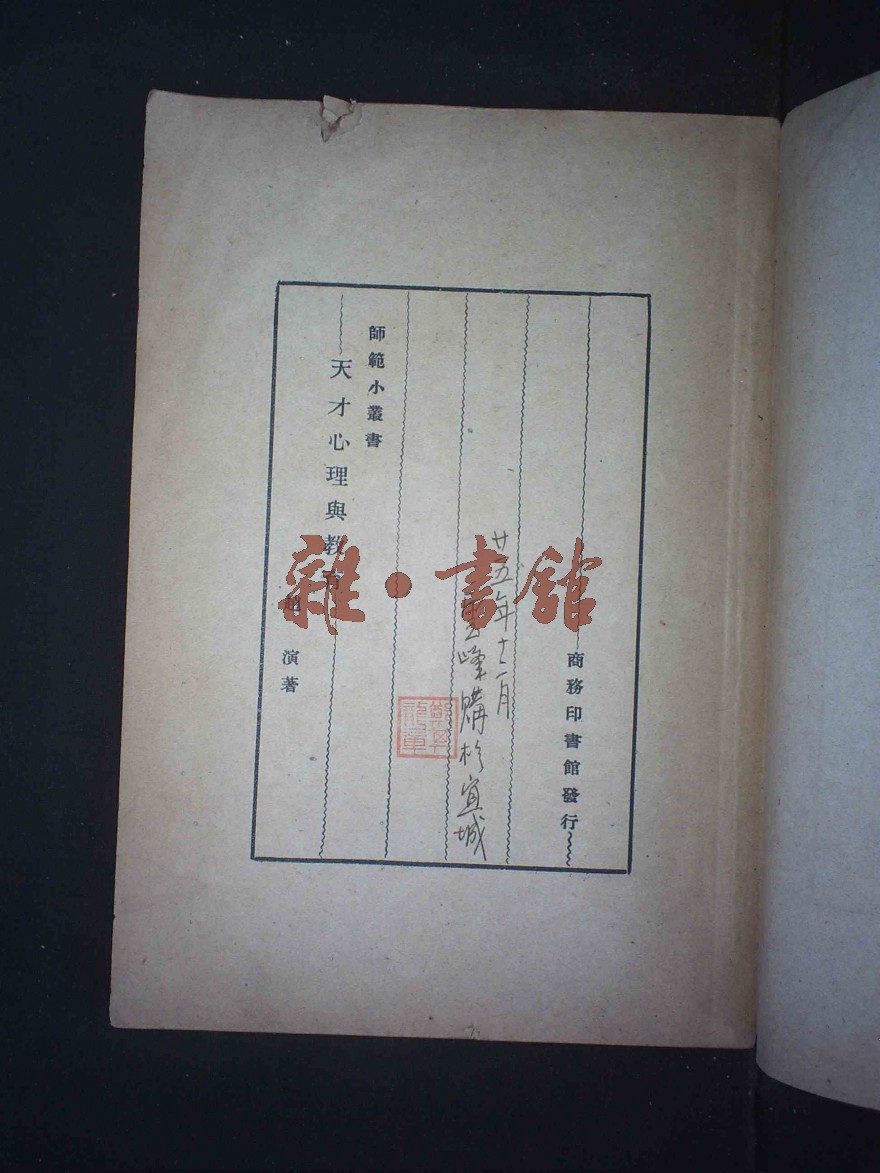 商務印書館發行
廿五年十二月
雲峰購於宣城
師範小叢書
天才心理與教育
趙演著
雜·書館